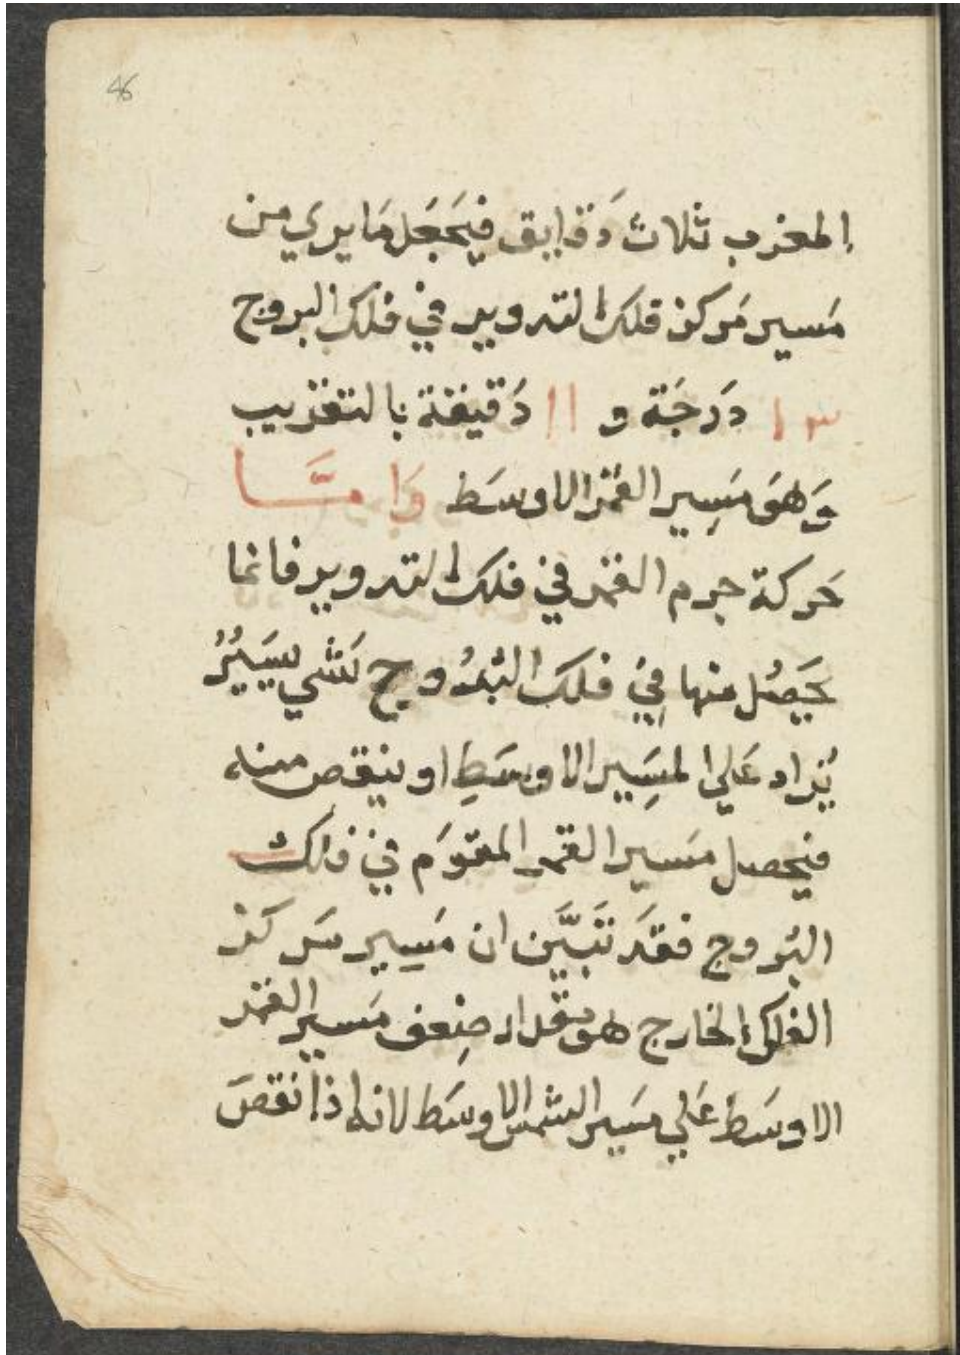 46
المغرب ثلاث دَقايق فيَجعَل مَا يري من
مَسير مَركز فلك التدوير في فلك البروج
١٣ دَرجَة و ١١ دَقيقة بالتقريب
وَهوَ مسَيِر القمَر الاوسَط وَامَّا
حَركة جرم القمَر في فلك التدوير فانما
يحَصُل منها فِي فلك البُرُوج كشي يسَيِرُ
يُزاد عَلي المسَيِر الاوسَطِ او ينقص منه
فيحصل مسَير القمر المقوَم في فلك
البُروج فقدَ تَبَيَّن ان مسَيِر مَركز
الفلك الخارج هو مقدار ضِعف مسَير القمَر
الاوسَط عَلي مسَير الشمس الاوسَط لانه اذا نقصَ